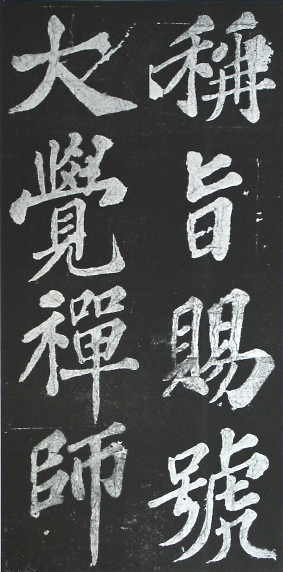 稱旨賜號
大覺禪師